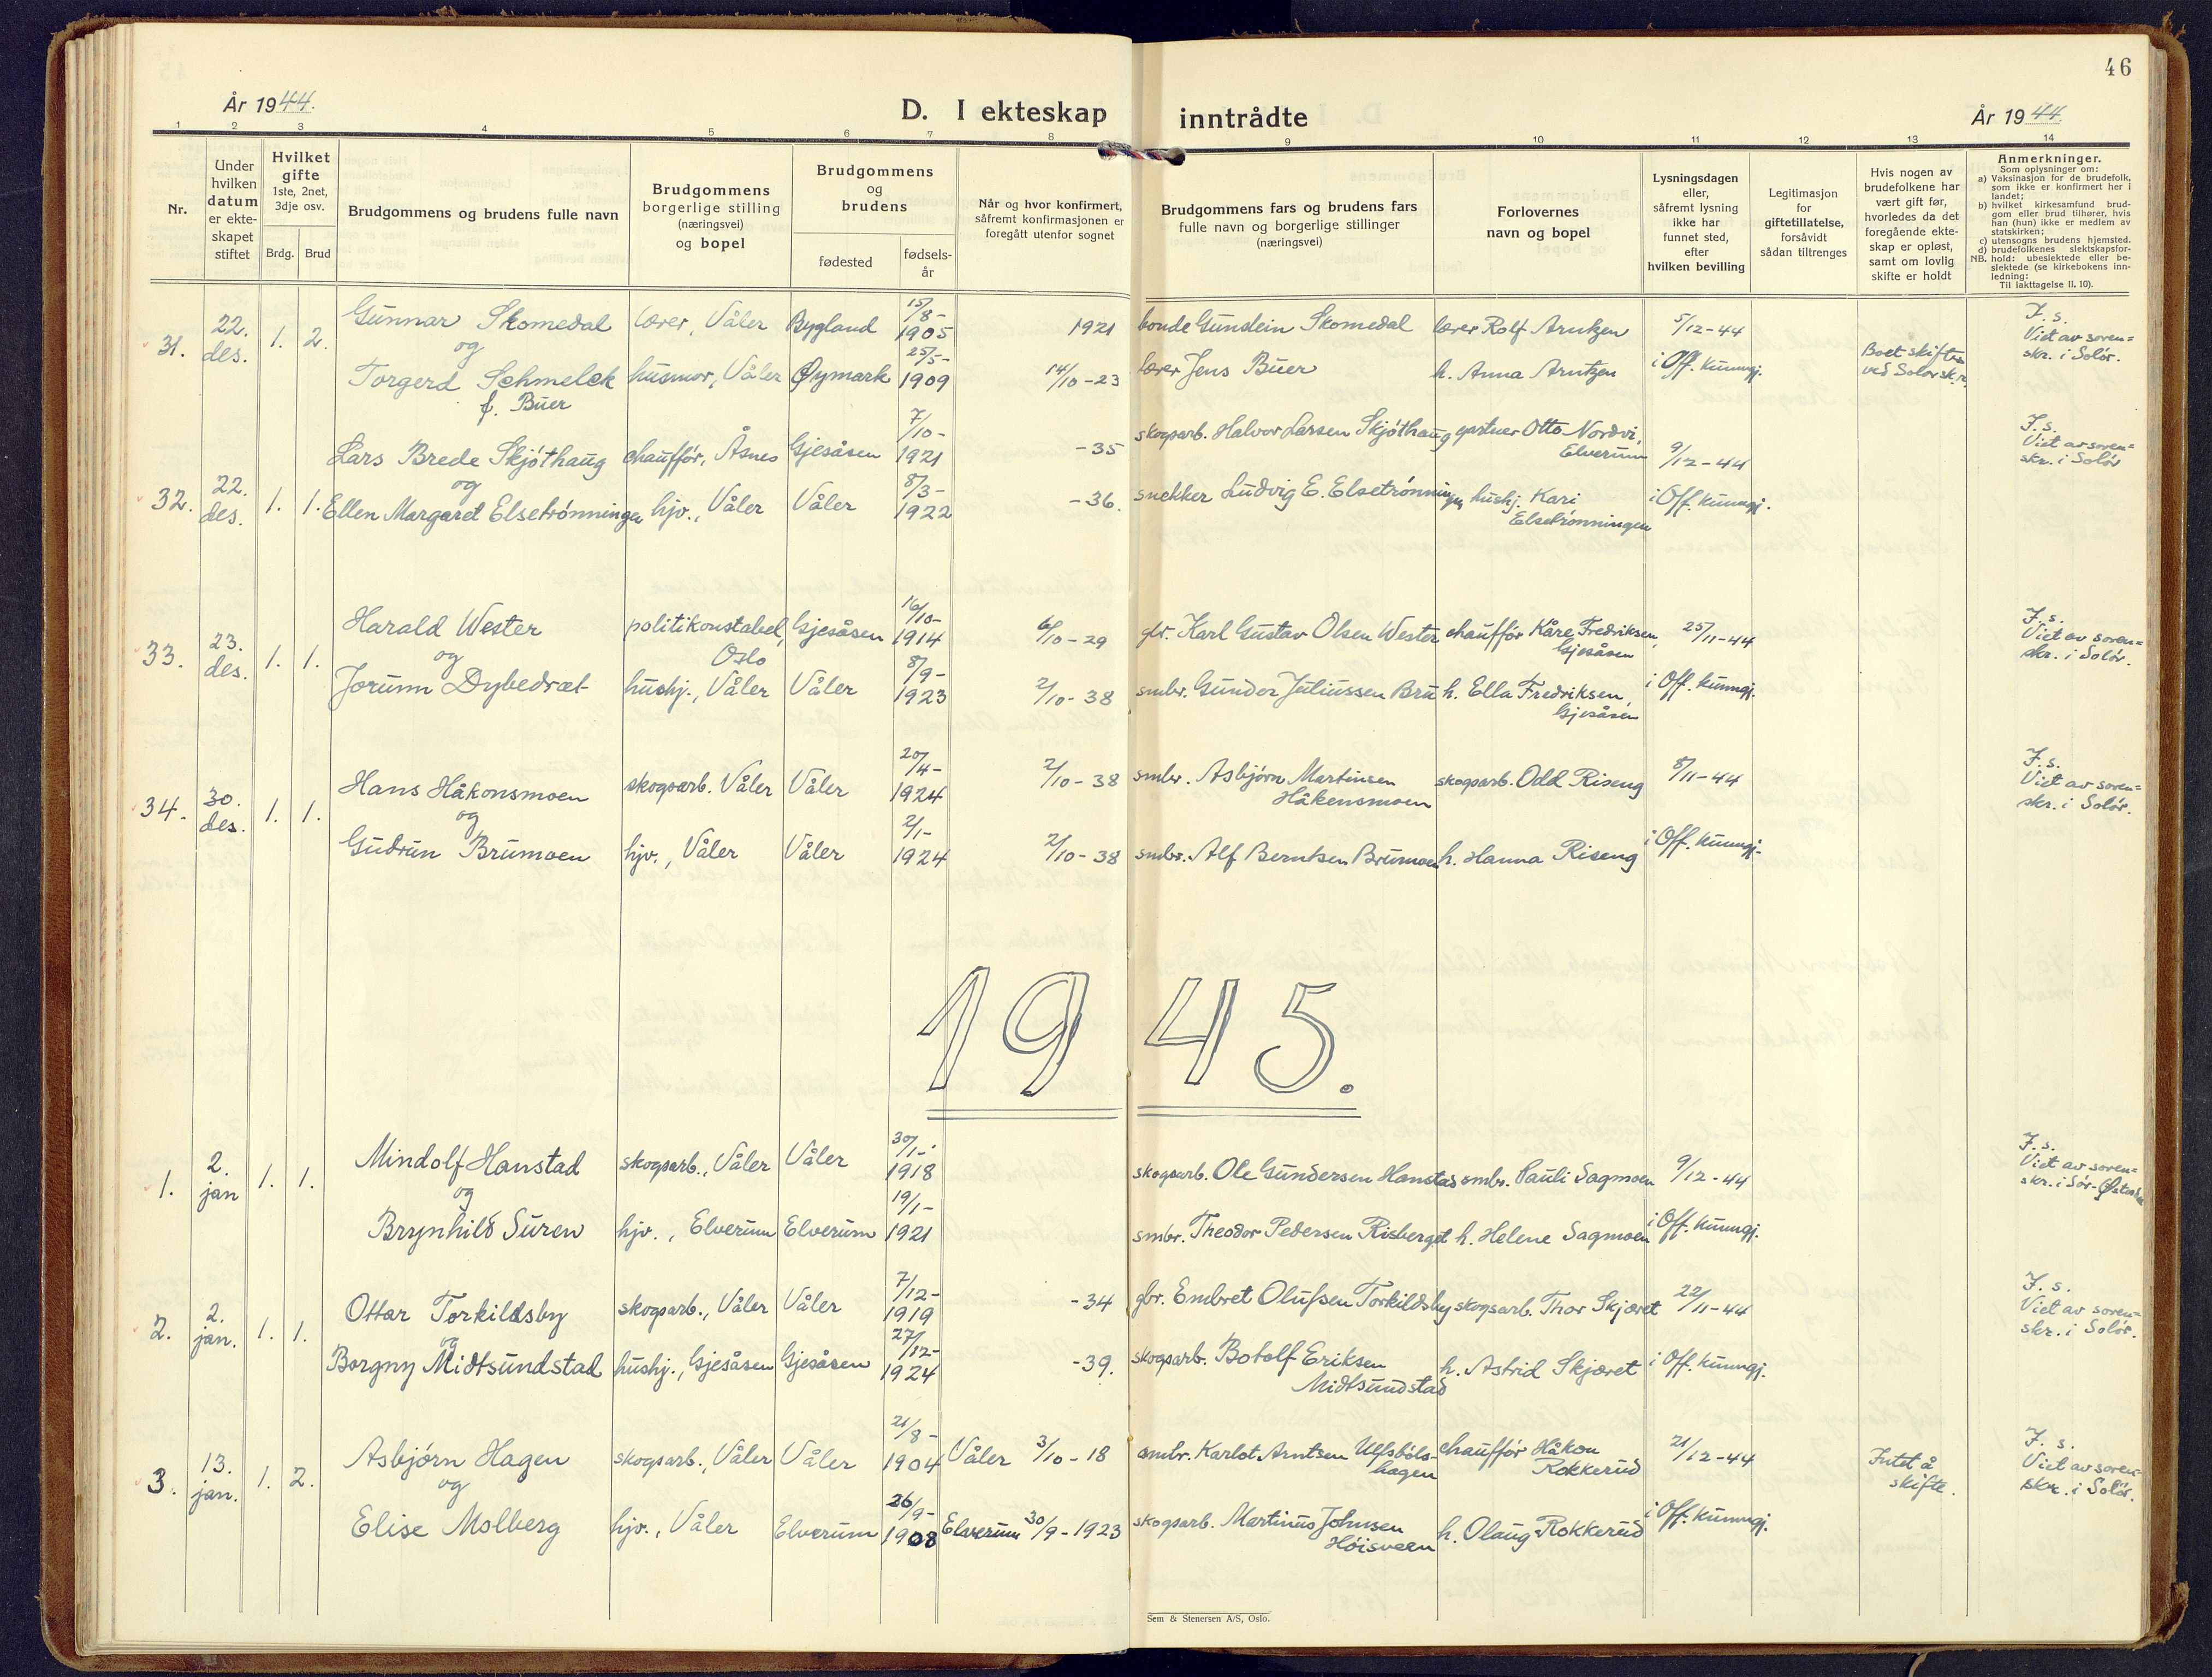 46
År 1944.
D. I ekteskap inntrådte
År 1944.
1 2 3 4 5 6 7 8 9 10 11 12 13 14
Nr.
Under
hvilken
datum
er ekte-
skapet
stiftet
Hvilket
gifte
1ste, 2net,
3dje osv.
Brdg. Brud
Brudgommens og brudens fulle navn
Brudgommens
borgerlige stilling
(næringsvei)
og bopel
Brudgommens
og
brudens
fødested
fødsels-
år
Når og hvor konfirmert,
såfremt konfirmasjonen er
foregått utenfor sognet
Brudgommens fars og brudens fars
fulle navn og borgerlige stillinger
(næringsvei)
Forlovernes
navn og bopel
Lysningsdagen
eller,
såfremt lysning
ikke har
funnet sted,
efter
hvilken bevilling
Legitimasjon
for
giftetillatelse,
forsåvidt
sådan tiltrenges
Hvis nogen av
brudefolkene har
vært gift før,
hvorledes da det
foregående ekte-
skap er opløst,
samt om lovlig
skifte er holdt
Anmerkninger.
Som oplysninger om:
a) Vaksinasjon for de brudefolk,
som ikke er konfirmert her i
landet;
b) hvilket kirkesamfund brud-
gom eller brud tilhører, hvis
han (hun) ikke er medlem av
statskirken;
c) utensogns brudens hjemsted.
d) brudefolkenes slektskapsfor-
NB. hold: ubeslektede eller be-
slektede (se kirkebokens inn-
ledning:
Til iakttagelse II. 10).
31. 22. des. 1. 2.
Gunnar Skomedal lærer, Våler Bygland 15/8- 1905 1921 bonde Gunslein Skomedal lærer Rolf Arntzen 5/12-44
og
Torgerd Schmelck husmor, Våler Øymark 25/5- 1909 14/10-23 lærer Jens Buer h. Anna Arntzen i Off. kunngj.
f. Buer
Boet skiftes
ved Solør skr.
F. s.
Viet av soren=
skr. i Solør.
32. 22. des. 1. 1.
Lars Brede Skjøthaug chauffør, Åsnes Gjesåsen 7/10- 1921 -35 skogsarb. Halvor Larsen Skjøthaug gartner Otto Nordvi, Elverum 9/12-44
og
Ellen Margaret Elsetrønningen hjv., Våler Våler 8/3- 1922 -36. snekker Ludvig E. Elsetrønningen hushj. Kari Elsetrønningen i Off. kunngj.
F. s.
Viet av soren=
skr. i Solør
33. 23. des. 1. 1.
Harald Wester politikonstabel, Oslo Gjesåsen 16/10- 1914 6/10-29 gbr. Karl Gustav Olsen Wester chauffør Kåre Fredriksen, Gjesåsen 25/11-44
og
Jorunn Dybedræt hushj., Våler Våler 8/9- 1923 2/10-38 smbr. Gunder Juliussen Bru h. Ella Fredriksen, Gjesåsen i Off. kunngj.
F. s.
Viet av soren=
skr. i Solør.
34. 30. des. 1. 1.
Hans Håkonsmoen skogsarb. Våler Våler 20/4- 1924 2/10-38 smbr. Asbjørn Martinsen Håkensmoen skogsarb. Odd Riseng 8/11-44
og
Gudrun Brumoen hjv., Våler Våler 2/1- 1924 2/10-38 smbr. Alf Berntsen Brumoen h. Hanna Riseng i Off. kunngj.
F. s.
Viet av soren=
skr. i Solør.
1945.
1. 2. jan 1. 1.
Mindolf Hanstad skogsarb., Våler Våler 30/1- 1918 skogsarb. Ole Gundersen Hanstad smbr. Pauli Sagmoen 9/12-44
og
Brynhild Suren hjv., Elverum Elverum 19/1- 1921 smbr. Theodor Pedersen Risberget h. Helene Sagmoen i Off. kunngj.
F. s.
Viet av soren=
skr. i Sør-Østerdal
2. 2. jan. 1. 1.
Ottar Torkildsby skogsarb., Våler Våler 7/12- 1919 -34 gbr. Embret Olufsen Torkildsby skogsarb. Thor Skjæret 22/11-44
og
Borgny Midtsundstad hushj., Gjesåsen Gjesåsen 27/12- 1924 -39. skogsarb. Botolf Eriksen Midtsundstad h. Astrid Skjæret i Off. kunngj.
F. s.
Viet av soren=
skr. i Solør.
3. 13. jan. 1. 2.
Asbjørn Hagen skogsarb., Våler Våler 21/8- 1904 Våler 3/10-18 smbr. Karlot Arntsen Ulfsbøls-hagen chauffør Håkon Rokkerud 21/12-44
og
Elise Molberg hjv., Våler Elverum 26/9- 1908 Elverum 30/9-1923 skogsarb. Martinus Johnsen Høisveen h. Olaug Rokkerud i Off. kunngj.
Intet å
skifte.
F. s.
Viet av soren=
skr. i Solør.
Sem & Stenersen A/S, Oslo.